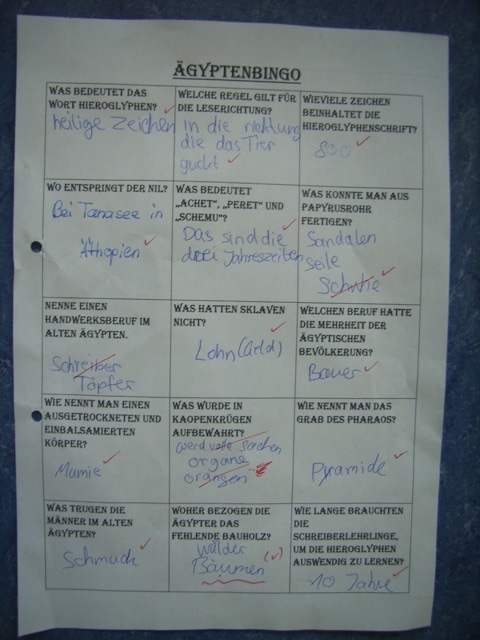 ÄGYPTENBINGO
WAS BEDEUTET DAS
WORT HIEROGLYPHEN?
heilige Zeichen
WELCHE REGEL GILT FÜR
DIE LESERICHTUNG?
in die richtung
die das Tier
guckt
WIEVIELE ZEICHEN
BEINHALTET DIE
HIEROGLYPHENSCHRIFT?
800
WO ENTSPRINGT DER NIL?
Bei Tanasee in
Äthopien
WAS BEDEUTET
„ACHET", „PERET" UND
„SCHEMU"?
Das sind die
drei Jahreszeiten
WAS KONNTE MAN AUS
PAPYRUSROHR
FERTIGEN?
Sandalen
seile
Schuhe
NENNE EINEN
HANDWERKSBERUF IM
ALTEN ÄGYPTEN.
Schreiber
Täpfer
WAS HATTEN SKLAVEN
NICHT?
Lohn (Geld)
WELCHEN BERUF HATTE
DIE MEHRHEIT DER
ÄGYPTISCHEN
BEVÖLKERUNG?
Bauer
WIE NENNT MAN EINEN
AUSGETROCKNETEN UND
EINBALSAMIERTEN
KÖRPER?
Mumie
WAS WURDE IN
KAOPENKRÜGEN
AUFBEWAHRT?
werdvolle Sachen
organe
orangen
WIE NENNT MAN DAS
GRAB DES PHARAOS?
Pyramide
WAS TRUGEN DIE
MÄNNER IM ALTEN
ÄGYPTEN?
Schmuck
WOHER BEZOGEN DIE
ÄGYPTER DAS
FEHLENDE BAUHOLZ?
Wälder
Bäumen
WIE LANGE BRAUCHTEN
DIE
SCHREIBERLEHRLINGE,
UM DIE HIEROGLYPHEN
AUSWENDIG ZU LERNEN?
10 Jahre